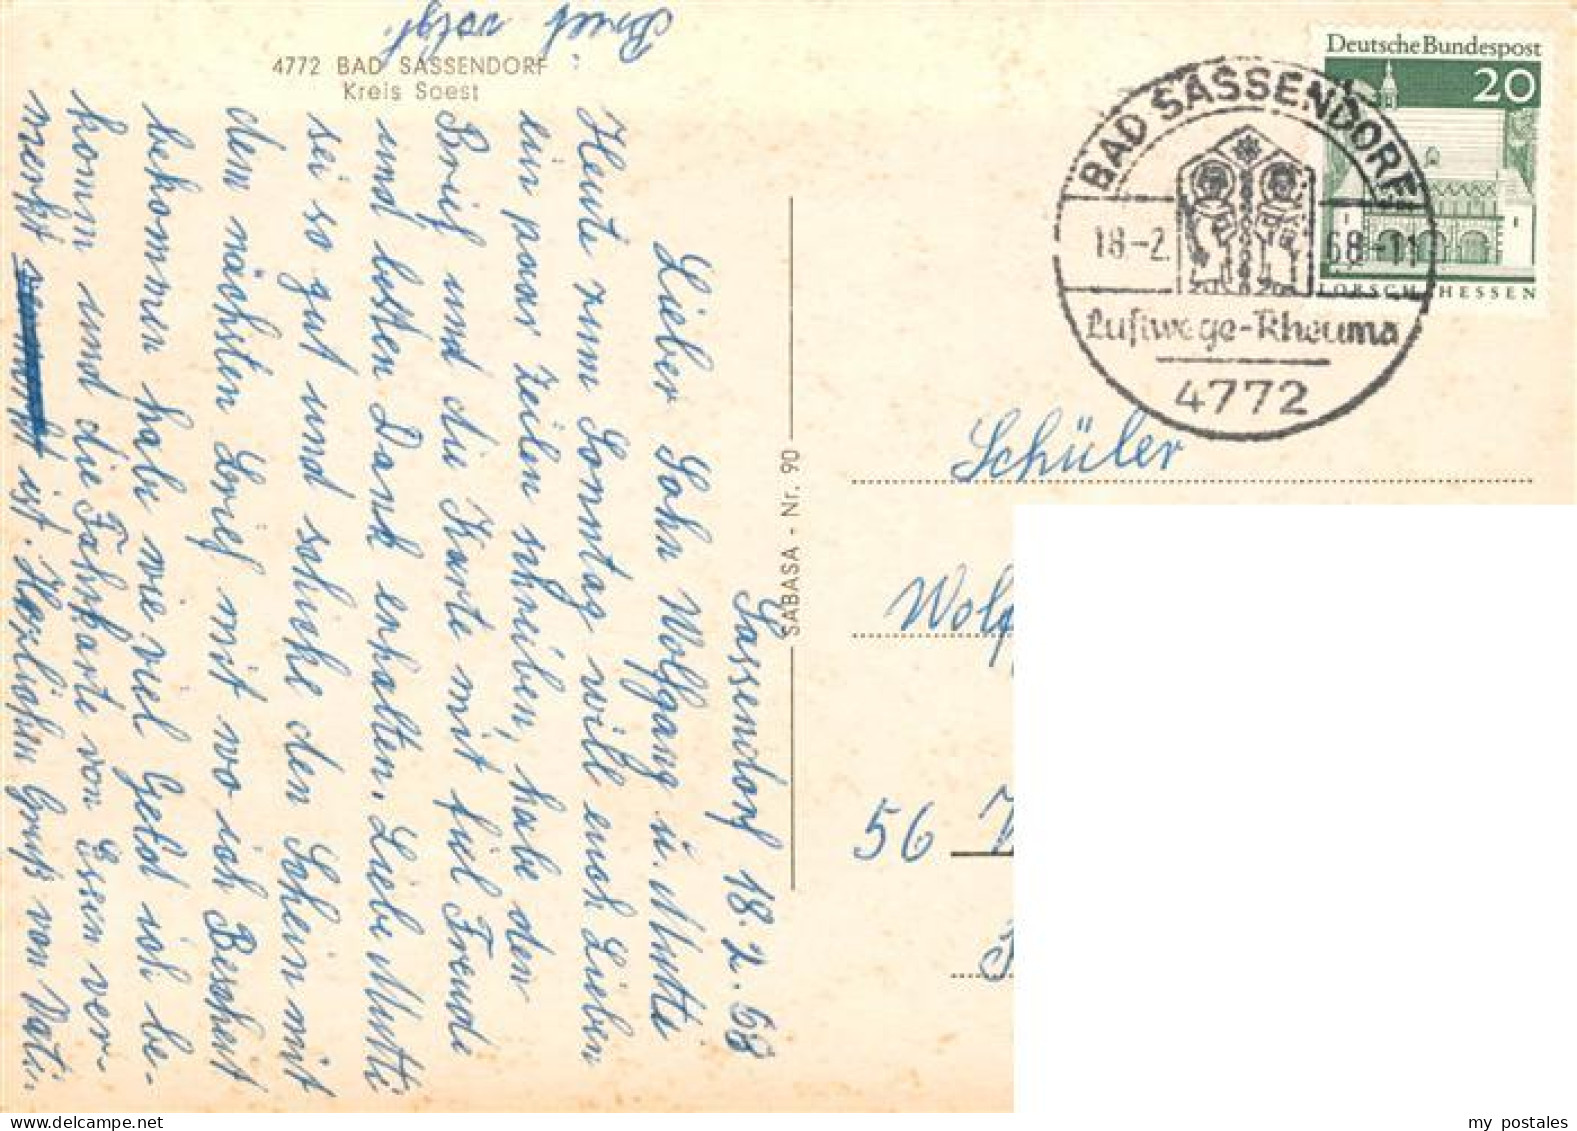 4772 BAD SASSENDORF
Kreis Soest
Brief folgt.
Sassendorf 18.2.68
Lieber Sohn Wolfgang u. Mutti
Heute zum Sonntag will euch Lieben
ein paar Zeilen schreiben, habe den
Brief und die Karte mit fiel Freude
und besten Dank erhalten. Liebe Mutti
sei so gut und schicke den Schein mit
dem nächsten Brief mit wo ich Bescheit
bekommen habe wie viel Geld ich be-
komm und die Fahrkarte von Essen ver-
merkt ist. Herzlichen Gruß von Vati
SABASA - Nr. 90
Deutsche Bundespost
20
LORSCH HESSEN
BAD SASSENDORF
18-2. 68-11
Luftwege-Rheuma
4772
Schüler
Wolf
56
my postales